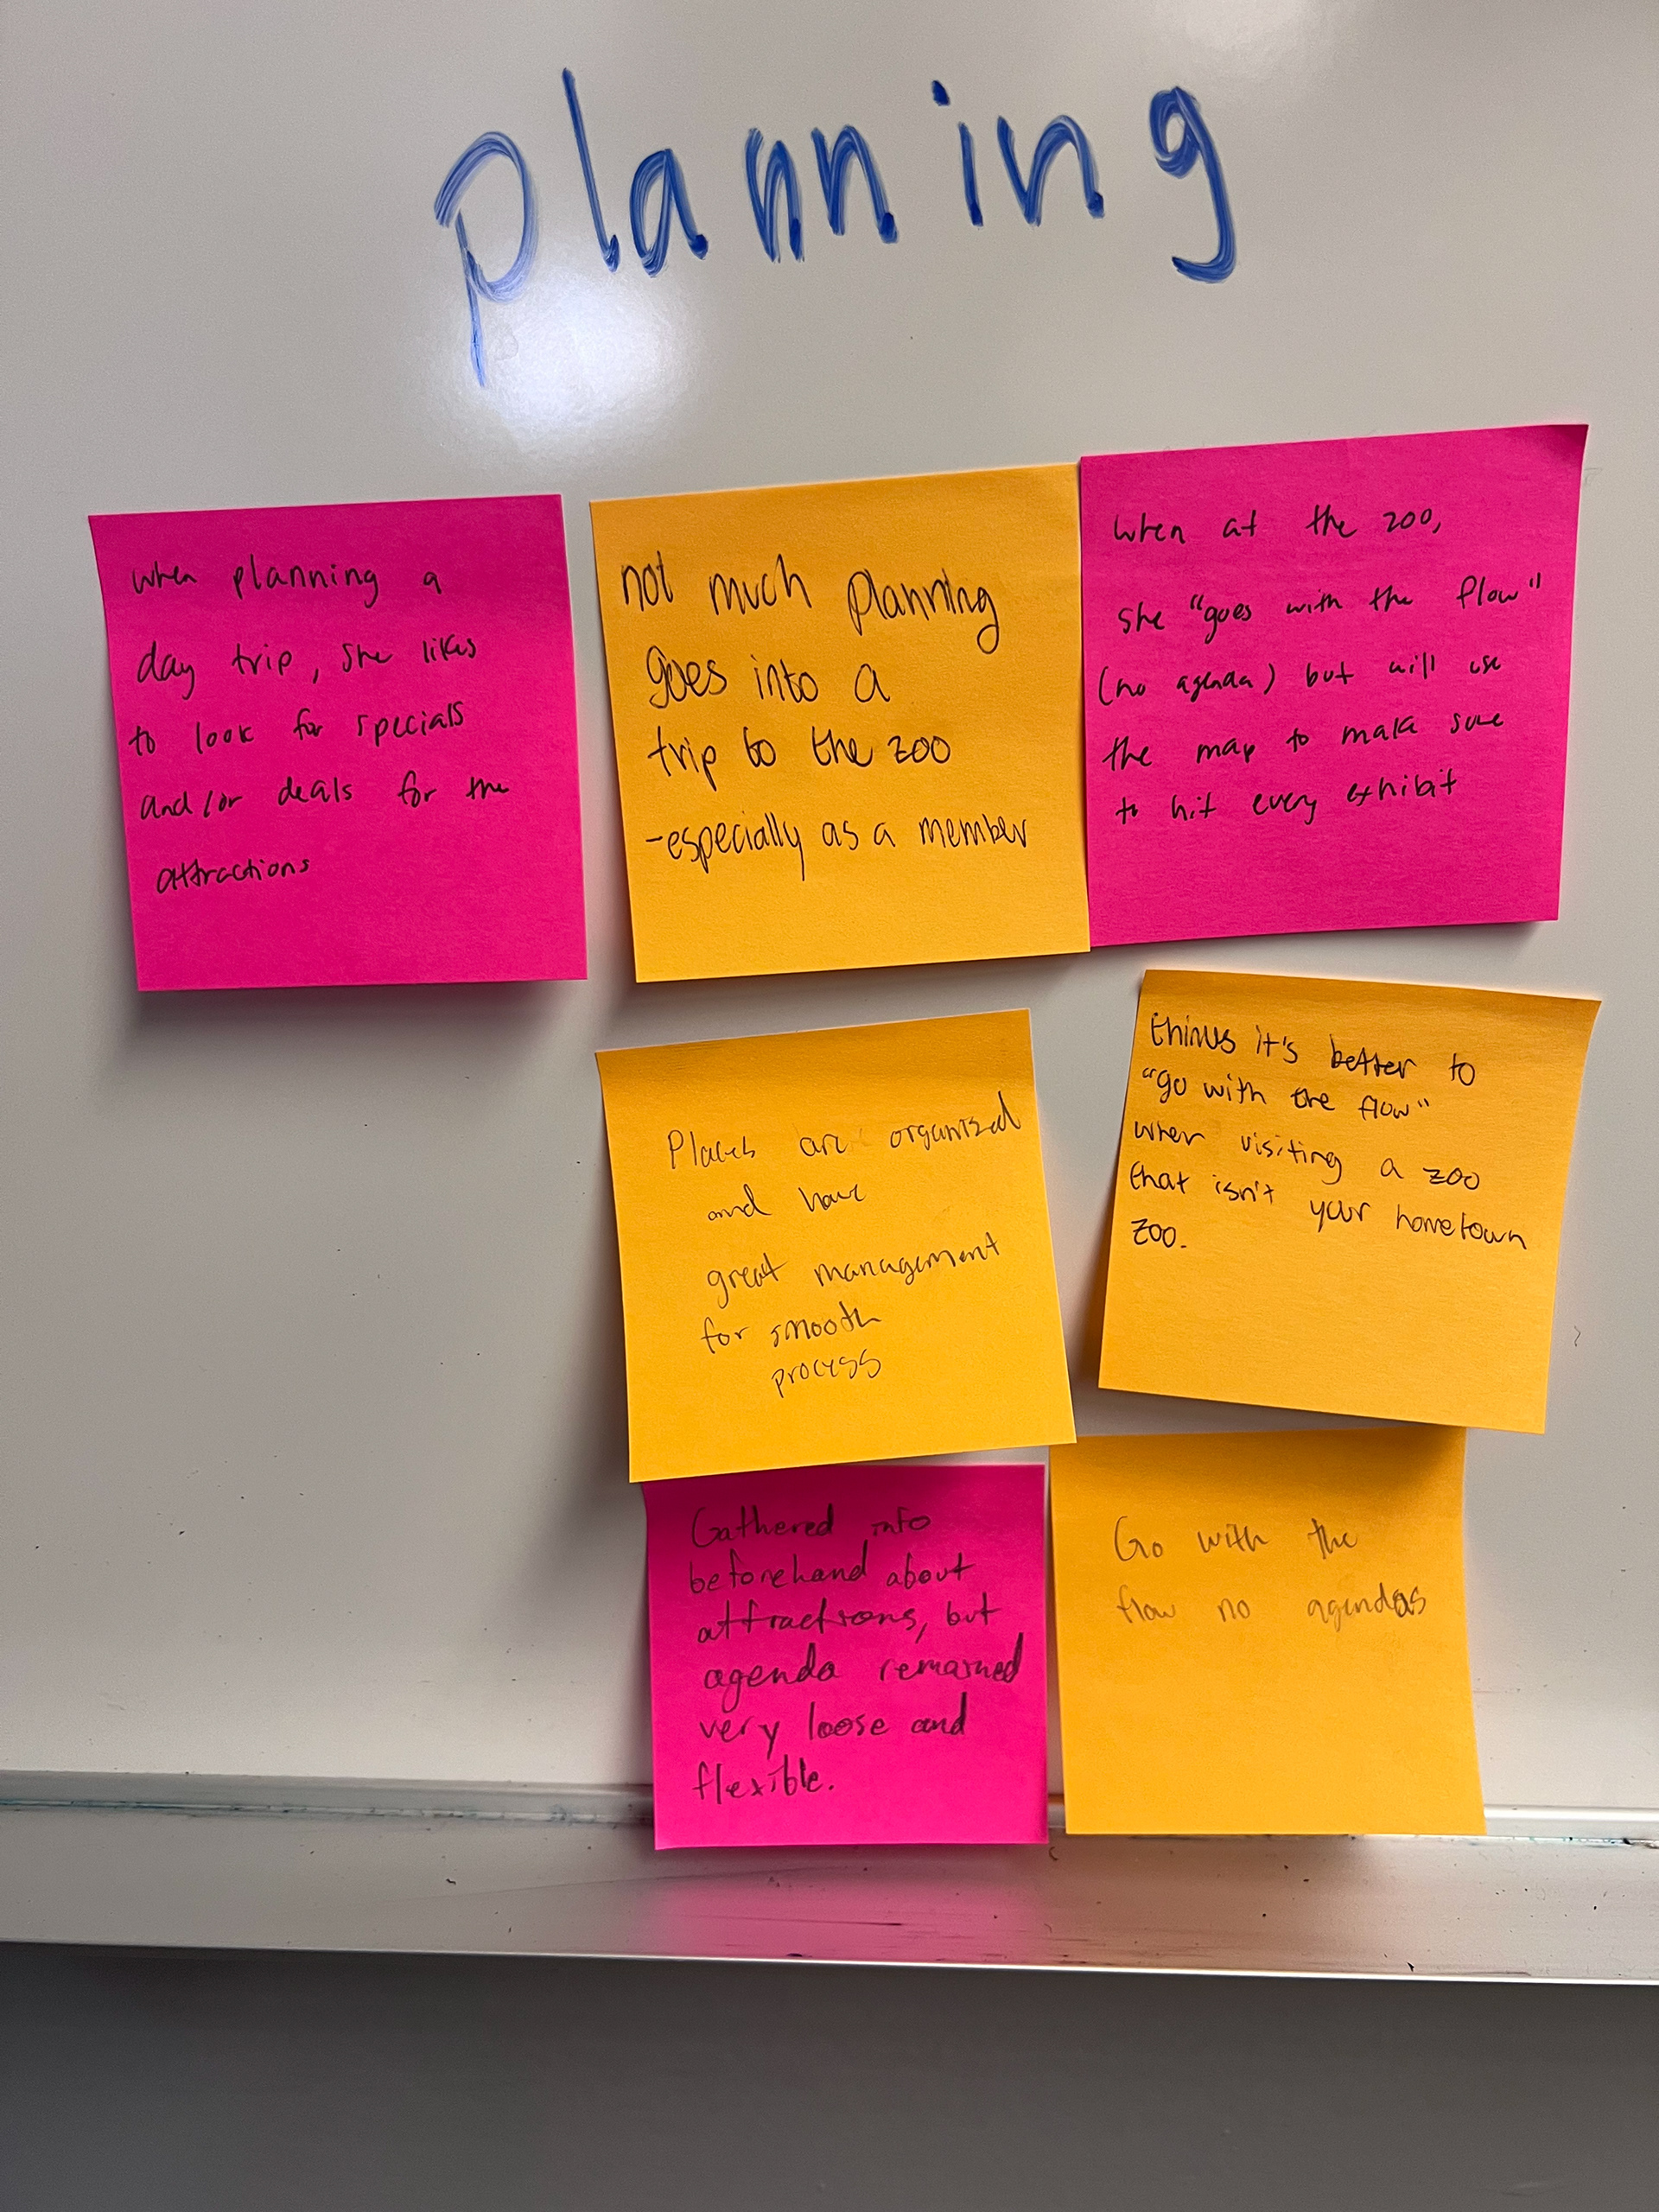 planning
when planning a
day trip, she likes
to look for specials
and/or deals for the
attractions
not much planning
goes into a
trip to the zoo
-especially as a member
when at the zoo,
she "goes with the flow"
(no agenda) but will use
the map to make sure
to hit every exhibit
Places are organized
and have
great management
for smooth
process
thinks it's better to
"go with the flow"
when visiting a zoo
that isn't your hometown
zoo.
Gathered info
beforehand about
attractions, but
agenda remained
very loose and
flexible.
Go with the
flow no agendas